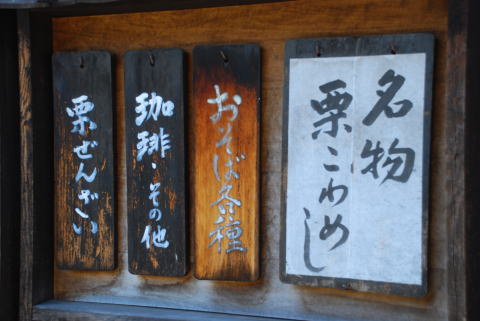 名物
栗こわめし
おそば各種
珈琲・その他
栗ぜんざい